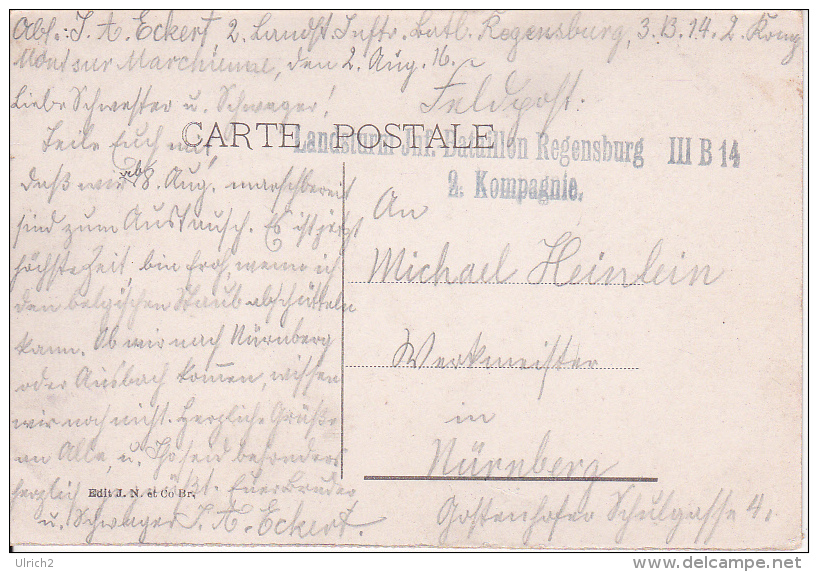 Abs.: J. A. Eckert 2. Landst. Inftr. Batl. Regensburg, 3.B.14. 2. Komp
Mont sur Marchienne, den 2. Aug. 16.
Feldpost.
Liebe Schwester u. Schwager!
CARTE POSTALE
Landsturm Inf. Bataillon Regensburg III B 14
2. Kompagnie.
Teile Euch mit,
daß wir ab 8. Aug. marschbereit
sind zum Austausch. Es ist jetzt
höchste Zeit, bin froh, wenn ich
den belgischen Staub abschütteln
kann. Ob wir nach Nürnberg
oder Ansbach kommen, wissen
wir noch nicht. Herzliche Grüße
an Alle, u. Ihr seid besonders
herzlich gegrüßt. Euer Bruder
u. Schwager J. A. Eckert.
An
Michael Heinlein
Werkmeister
in
Nürnberg
Gostenhofer Schulgasse 4.
Edit J. N. et Co Br.
Ulrich2
delcampe.net